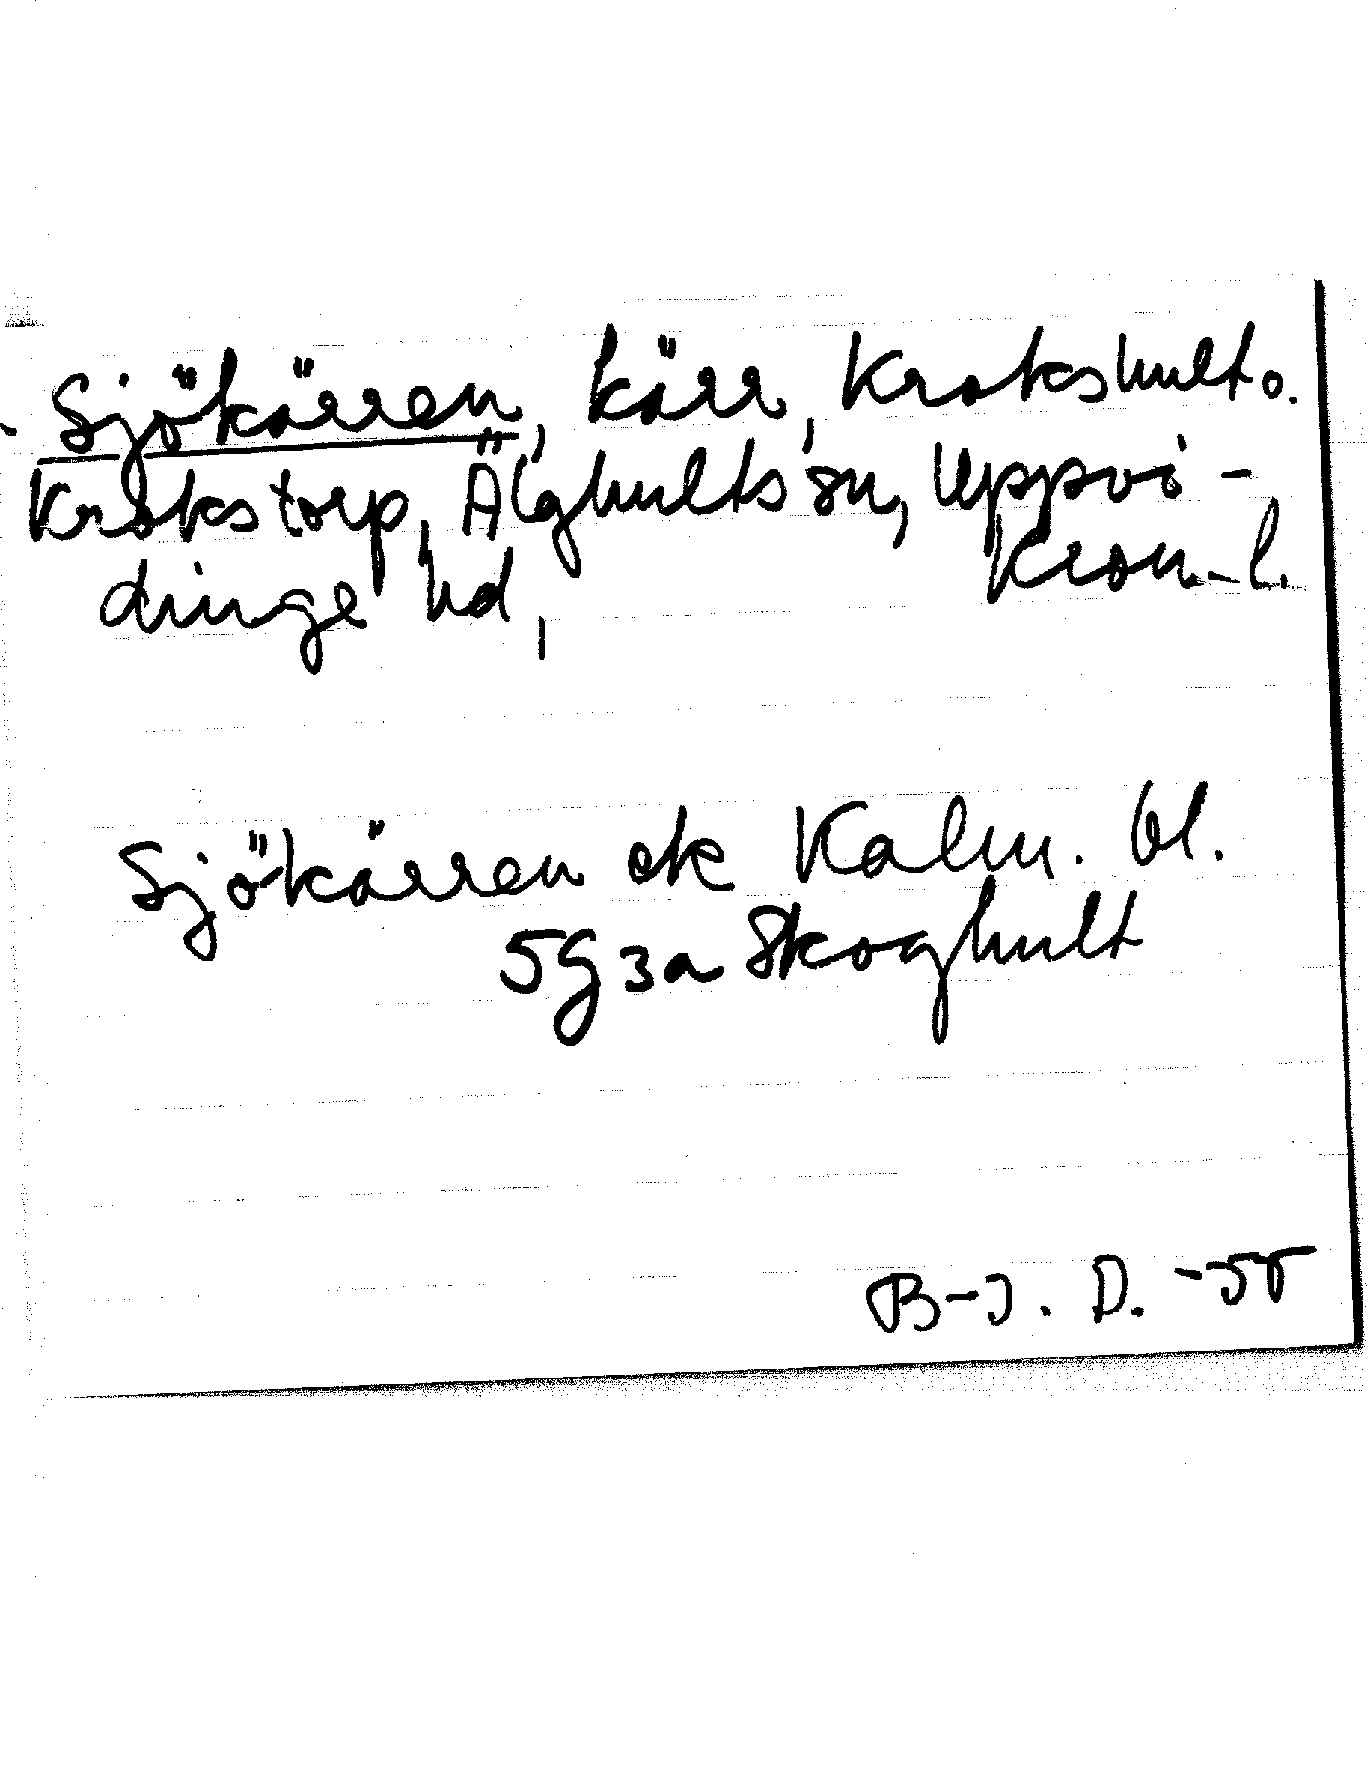 Sjökärren, kärr, Krokshult o.
Krokstorp, Älghults sn, Uppvi-
dinge hd, Kron.-l.
Sjökärren ek Kalm. bl.
5g3a Skoghult
B-J. D. -55